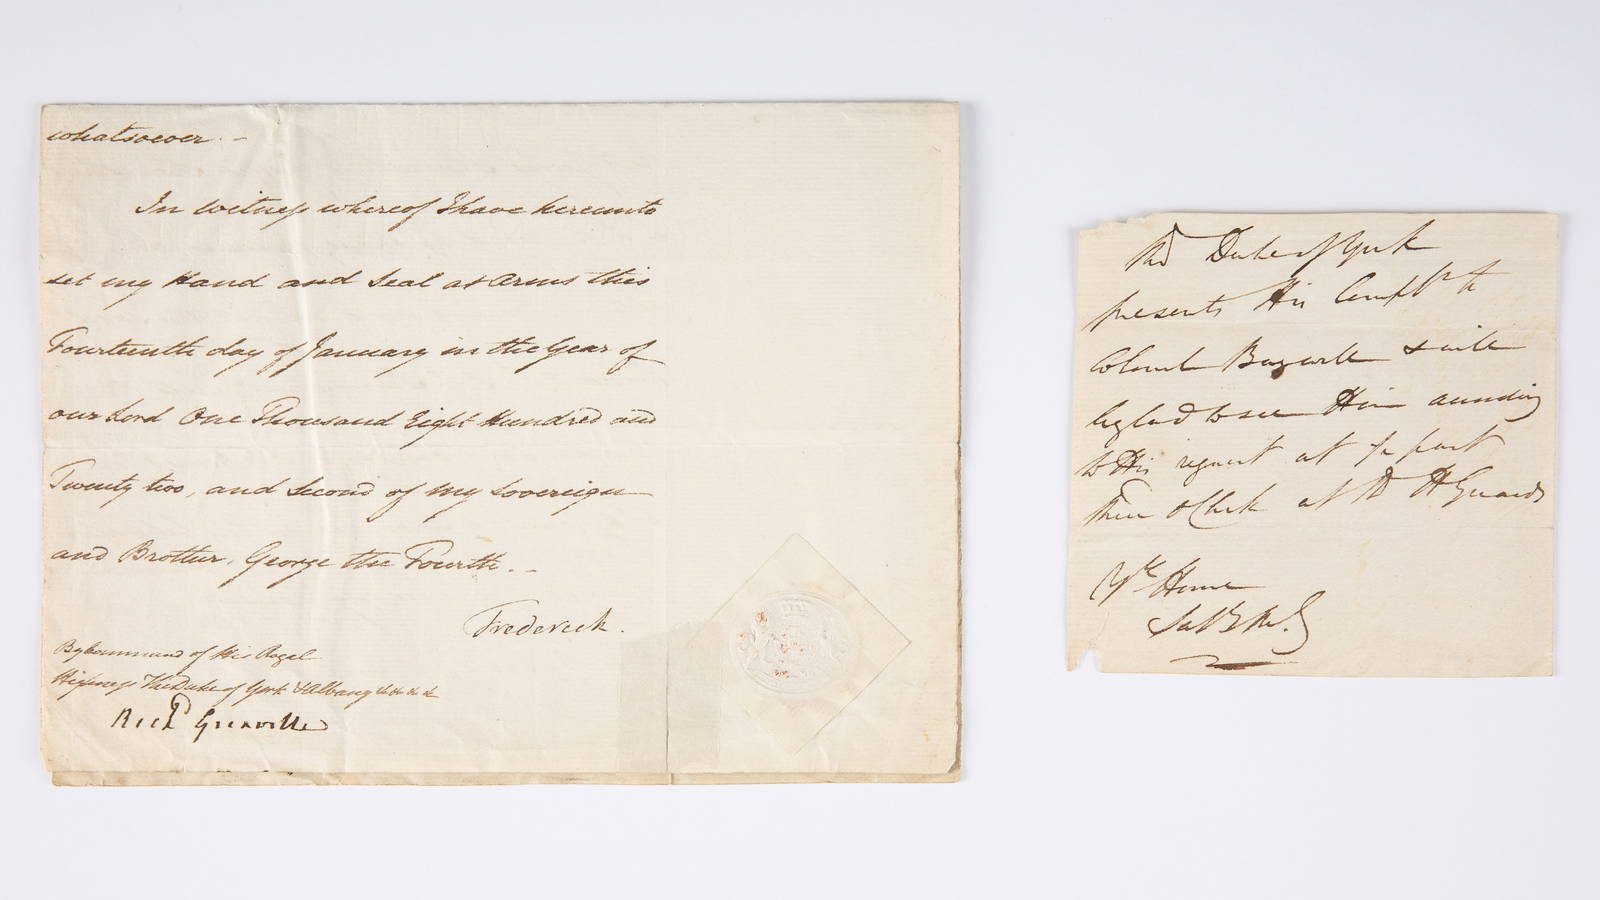 whatsoever. –
In Witness whereof I have hereunto
set my Hand and Seal at Arms this
Fourteenth day of January in the Year of
our Lord One Thousand Eight Hundred and
Twenty two, and Second of my Sovereign
and Brother, George the Fourth. –
Frederick.
By Command of His Royal
Highness The Duke of York & Albany &c &c &c &c
Richd Grenville
The Duke of York
presents His Complts to
Colonel & will
be glad to see Him
to His request at ½ past
Three o'Clock at the H Guards
Yk House